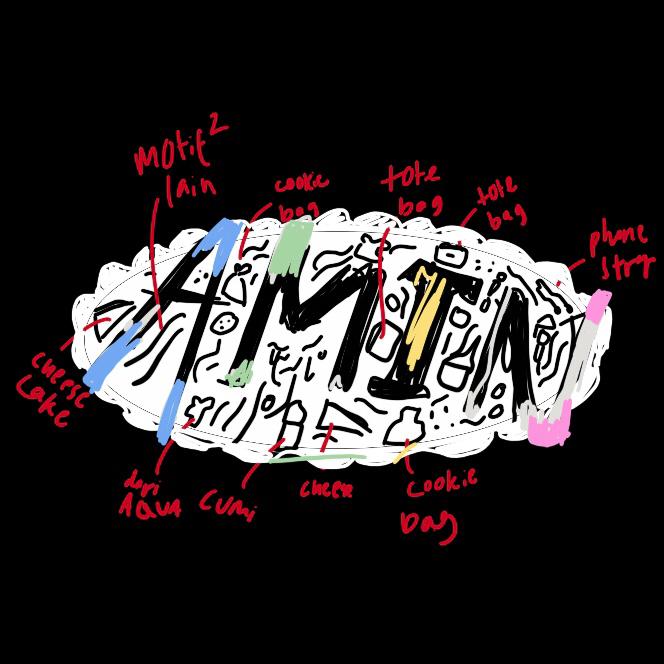 motif²
lain
cookie
bag
tote
bag
tote
bag
phone
strap
AMIN
cheese
cake
dari
AQUA
cumi
cheese
cookie
bag